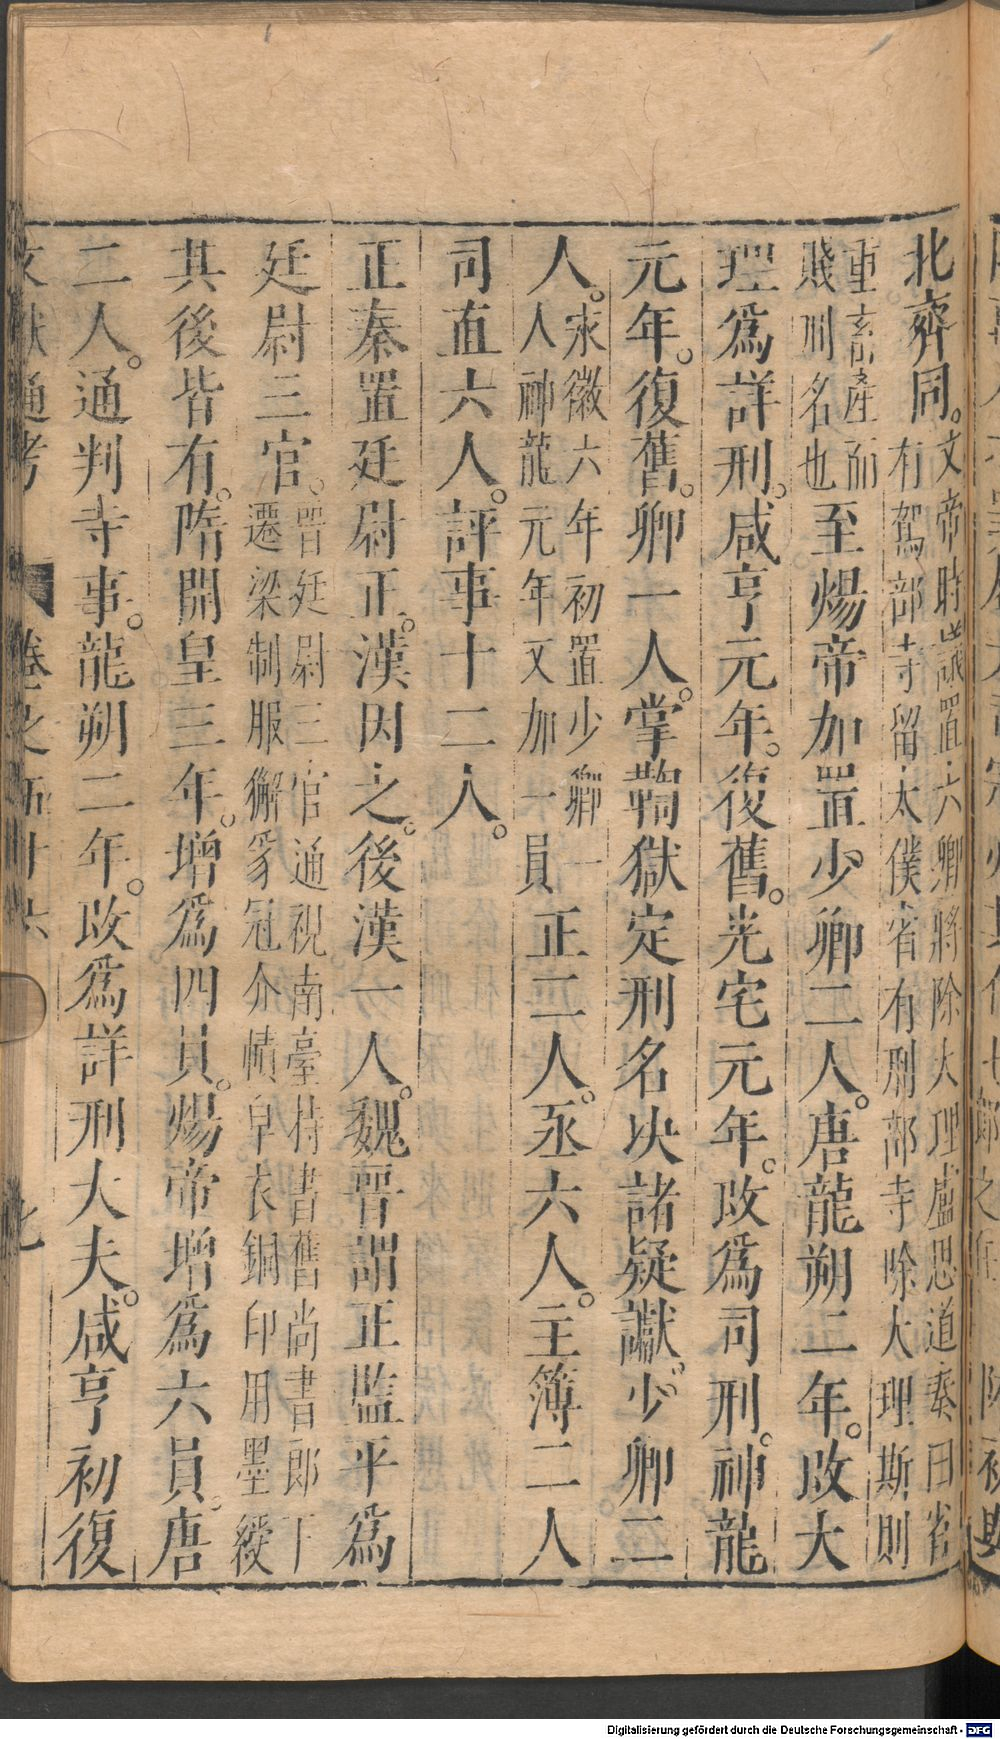 北齊同。文帝時議置六卿將除大理盧思道奏曰省
有駕部寺留太僕省有刑部寺除大理斯則
重畜產而
賤刑名也至煬帝加置少卿二人。唐龍朔二年。改大
理爲詳刑。咸亨元年。復舊。光宅元年。改爲司刑。神龍
元年。復舊。卿一人。掌鞫獄定刑名决諸疑讞。少卿二
人。永徽六年初置少卿一
人神龍元年又加一員正二人。丞六人。主簿二人
司直六人。評事十二人。
正秦置廷尉正。漢因之。後漢一人。魏晉謂正監平爲
廷尉三官。晉廷尉三官通視南臺持書舊尚書郎下
遷梁制服獬豸冠介幘皁衣銅印用墨綬
其後皆有。隋開皇三年。增爲四員。煬帝增爲六員。唐
二人。通判寺事。龍朔二年。改爲詳刑大夫。咸亨初復
文獻通考 卷之五十六 七
Digitalisierung gefördert durch die Deutsche Forschungsgemeinschaft - DFG